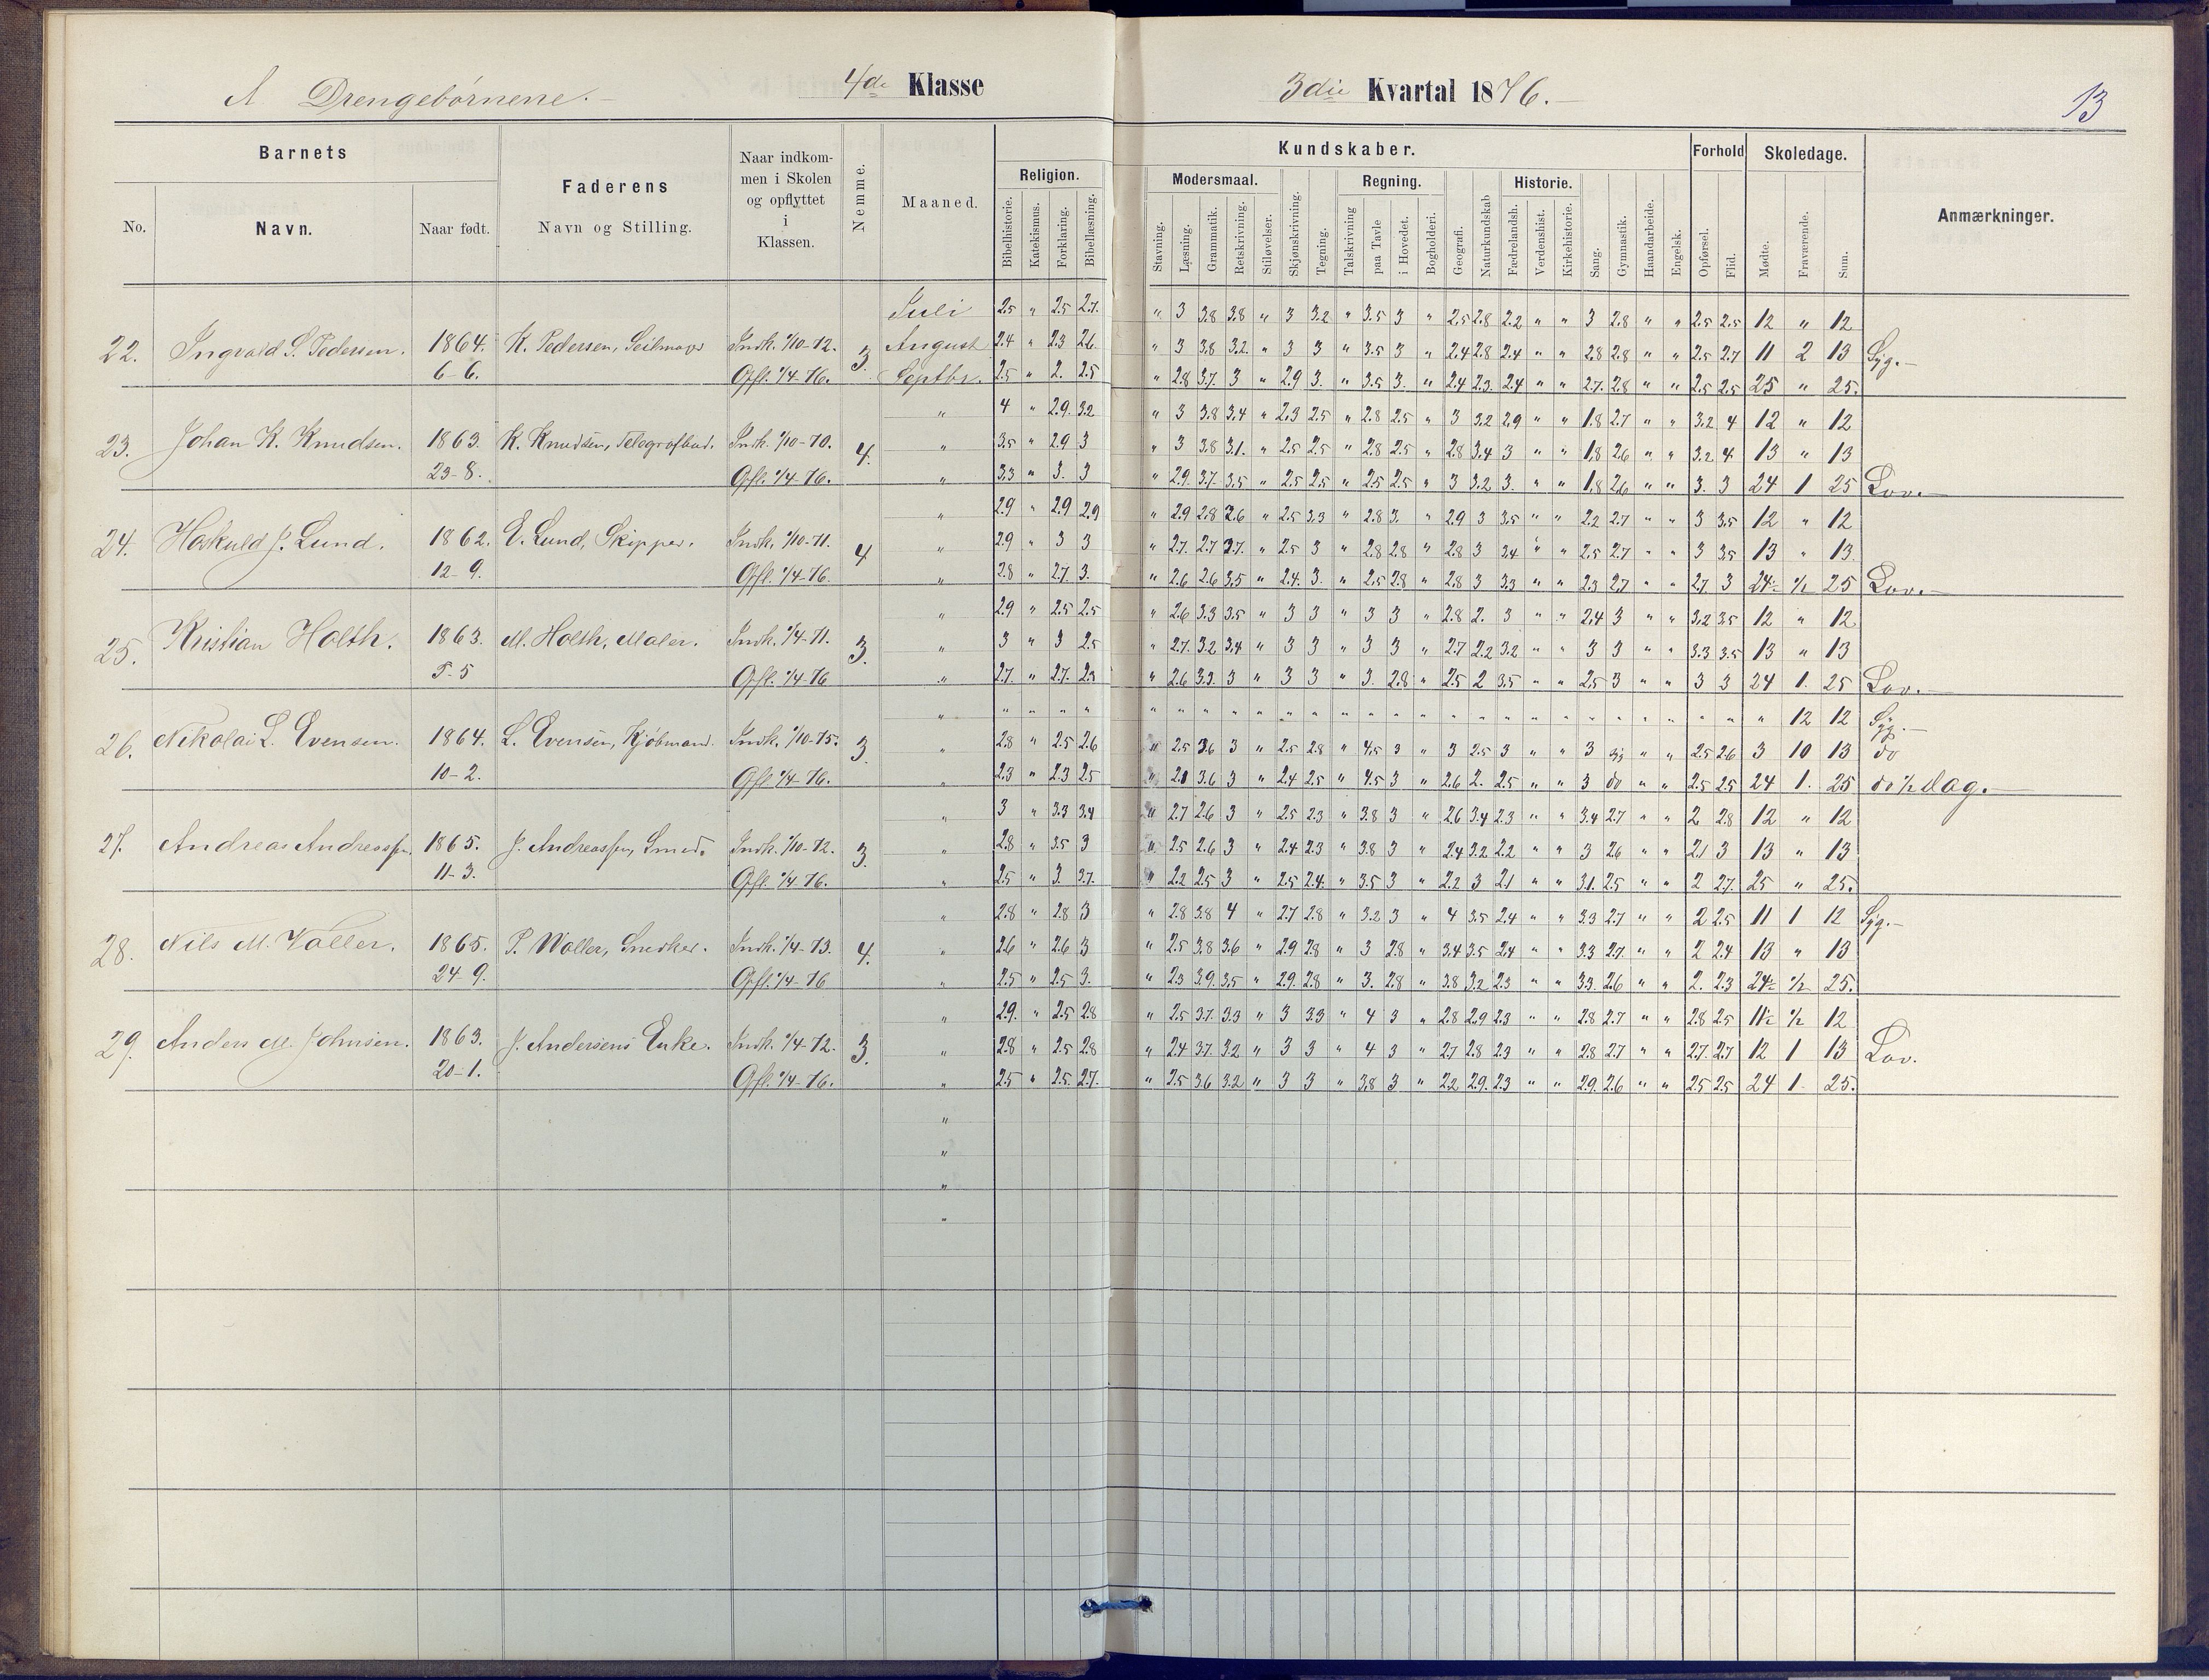 A Drengebørnene.
4de Klasse
3die Kvartal 1876.
13
Barnets
No.
Navn.
Naar født.
Faderens
Navn og Stilling.
Naar indkom-
men i Skolen
og opflyttet
i
Klassen.
Nemme.
Maaned.
Kundskaber.
Religion.
Bibelhistorie.
Katekismus.
Forklaring.
Bibellæsning.
Modersmaal.
Stavning.
Læsning.
Grammatik.
Retskrivning.
Stiløvelser.
Skjønskrivning.
Tegning.
Regning.
Talskrivning
paa Tavle
i Hovedet.
Bogholderi.
Geografi.
Naturkundskab
Historie.
Fædrelandsh.
Verdenshist.
Kirkehistorie.
Sang.
Gymnastik.
Haandarbeide.
Engelsk.
Forhold
Opførsel.
Flid.
Skoledage.
Mødte.
Fraværende.
Sum.
Anmærkninger.
Juli 2.5 " 2.5 2.7. " 3 3.8 3.8 " 3 3.2 " 3.5 3 " 2.5 2.8 2.2 " " 3 2.8 " " 2.5 2.5 12 " 12
22. Ingvald S. Pedersen. 1864. K. Pedersen, Seilmager Indk. 1/10-72. 3 August 2.4 " 2.3 2.6 " 3 3.8 3.2. " 3 3 " 3.5 3 " 2.4 2.8 2.4 " " 2.8 2.8 " " 2.5 2.7 11 2 13 Syg.-
6-6. Opfl. 1/4-76. Septbr. 2.5 " 2. 2.5 " 2.8 3.7. 3 " 2.9 3. " 3.5 3. " 2.4 2.3. 2.4 " " 2.7. 2.8 " " 2.5 2.5 25 " 25.
" 4 " 2.9. 3.2 " 3 3.8 3.4 " 2.3 2.5 " 2.8 2.5 " 3 3.2 2.9 " " 1.8 2.7 " " 3.2 4 12 " 12
23. Johan K. Knudsen. 1863. K. Knudsen, Telegrafbud. Indk. 1/10-70. 4. " 3.5 " 2.9 3 " 3 3.8 3.1. " 2.5 2.5 " 2.8 2.5 " 2.8 3.4 3 " " 1.8 2.6 " " 3.2 4. 13 " 13
23-8. Opfl. 1/4-76. " 3.3 " 3. 3 " 2.9. 3.7. 3.5 " 2.5 2.5 " 2.5 2.5 " 3 3.2 3. " " 1.8 2.6 " " 3. 3 24 1 25 Lov.-
" 2.9 " 2.9 2.9 " 2.9 2.8 2.6 " 2.5 3.3 " 2.8 3. " 2.9 3 3.5 " " 2.2 2.7 " " 3 3.5 12 " 12
24. J. Lund. 1862. E. Lund, Skipper. Indk. 1/10-71. 4 " 2.9 " 3 3 " 2.7. 2.7 3.7. " 2.5 3 " 2.8 2.8 " 2.8 3 3.4 " " 2.5 2.7 " " 3 3.5 13 " 13.
12-9. Opfl. 1/4-76. " 2.8 " 2.7. 3. " 2.6 2.6 3.5 " 2.4. 3. " 2.5 2.8 " 2.8 3 3.3 " " 2.3 2.7 " " 2.7 3 24½ ½ 25 Lov.-
" 2.9 " 2.5 2.5 " 2.6 3.3 3.5 " 3 3 " 3 3 " 2.8 2. 3 " " 2.4 3 " " 3.2 3.5 12 " 12
25. Kristian Holth. 1863. M. Holth, Maler. Indk. 1/4-71. 3. " 3 " 3 2.5 " 2.7. 3.2 3.4 " 3 3 " 3 3 " 2.7 2.2 3.2 " " 3 3 " " 3.3 3.5 13 " 13
5-5 Opfl. 1/4-76 " 2.7. " 2.7. 2.3 " 2.6 3.3. 3 " 3 3 " 3. 2.8 " 2.5 2 3.5 " " 2.5 3 " " 3 3 24 1. 25 Lov.-
" " " " " " " " " " " " " " " " " " " " " " " " " " " " 12 12 Syg.-
26. Nikolai L. Evensen. 1864. L. Evensen, Kjøbmand. Indk. 1/10-75. 3. " 2.8 " 2.5 2.6 " 2.5 3.6 3 " 2.5 2.8 " 4.5 3 " 3 2.5 3 " " 3 " " 2.5 2.6 3 10 13 do
10-2. Opfl. 1/4-76. " 2.3 " 2.3 2.5 " 2.1 3.6 3 " 2.4 2.5 " 4.5 3 " 2.6 2. 2.5 " " 3 do " " 2.5 2.5 24 1. 25 do ½ dag.-
" 3 " 3.3 3.4 " 2.7 2.6 3 " 2.5 2.3 " 3.8 3 " 2.6 3.4 2.3 " " 3.4 2.7 " " 2 2.8 12 " 12
27. Andreas Andreassen. 1865. J. Andreassen, Smed. Indk. 1/10-72. 3. " 2.8 " 3.5 3 " 2.5 2.6 3 " 2.4 2.3 " 3.8 3 " 2.4 3.2 2.2 " " 3 2.6 " " 2.1 3 13 " 13
11-3. Opfl. 1/4-76. " 2.5 " 3. 3.7. " 2.2 2.5 3 " 2.5 2.4. " 3.5 3 " 2.2 3 2.1 " " 3.1. 2.5 " " 2 2.7. 25 " 25.
" 2.8 " 2.8 3 " 2.8 3.8 4 " 2.7 2.8 " 3.2 3 " 4 3.5 2.4 " " 3.3 2.7 " " 2 2.5 11 1 12 Syg.-
28. Nils M. Wøller. 1865. P. Wøller, Snedker. Indk. 1/4-73. 4. " 2.6 " 2.6 3 " 2.5 3.8 3.6 " 2.9 2.8 " 3 2.8 " 3.4 3.5 2.4 " " 3.3 2.7. " " 2 2.4 13 " 13
24-9. Opfl. 1/4-76 " 2.5 " 2.5 3. " 2.3 3.9. 3.5 " 2.9. 2.8 " 3. 2.8 " 3.8 3.2 2.3 " " 3.3. 2.6 " " 2. 2.3 24½ ½ 25.
" 2.9. " 2.5 2.8 " 2.5 3.7. 3.3 " 3 3.3 " 4 3 " 2.8 2.9 2.3 " " 2.8 2.7 " " 2.8 2.5 11½ ½ 12
29. Anders M. Johnsen. 1863. J. Andersens Enke. Indk. 1/4-72. 3. " 2.8 " 2.5 2.8 " 2.4 3.7. 3.2 " 3 3 " 4 3 " 2.7 2.8 2.3 " " 2.8 2.7 " " 2.7. 2.7 12 1 13 Lov.
20-1. Opfl. 1/4-76. " 2.5 " 2.5. 2.7. " 2.5 3.6 3.2 " 3 3 " 3.8 3 " 2.2 2.9. 2.3 " " 2.9. 2.6 " " 2.5 2.5 24 1 25.
"
"
"
"